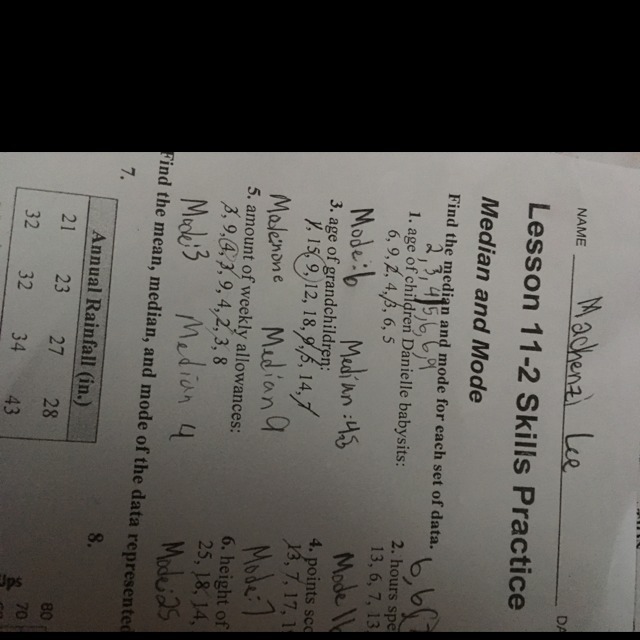 NAME Mackenzi Lee
Lesson 11-2 Skills Practice
Median and Mode
Find the median and mode for each set of data.
2, 3, 4, 5, 6, 6, 9
1. age of children Danielle babysits:
6, 9, 2, 4, 3, 6, 5
Mode: 6 Median: 45
3. age of grandchildren:
15, 9, 12, 18, 9, 5, 14,
Mode none Median 9
5. amount of weekly allowances:
3, 9, 4, 3, 9, 4, 2, 3, 8
Mode: 3 Median 4
6, 6
2. hours spe
13, 6, 7, 13
Mode
4. points sco
13, 7, 17, 1
Mode: 7
6. height of
25, 18, 14,
Mode: 25
Find the mean, median, and mode of the data represented
7.
Annual Rainfall (in.)
21 23 27 28
32 32 34 43
8.
80
70